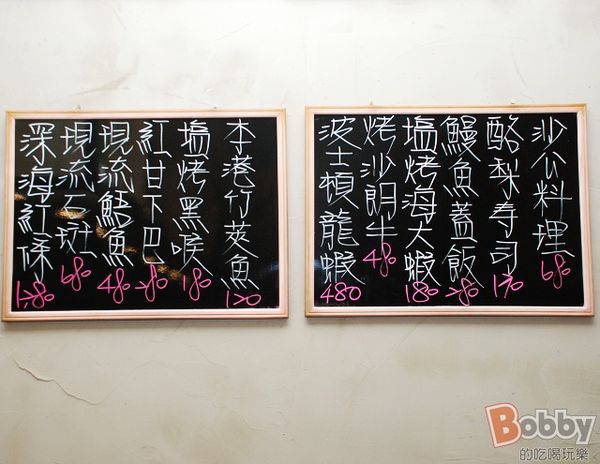 沙公料理 680
酪梨壽司 170
鰻魚蓋飯 280
塩烤海大蝦 180
烤沙朗牛 480
波士頓龍蝦 480
李港竹莢魚 120
塩烤黑喉 180
紅甘下巴 280
現流鮚魚 480
現流石斑 680
深海紅條 1280
Bobby
的吃喝玩樂